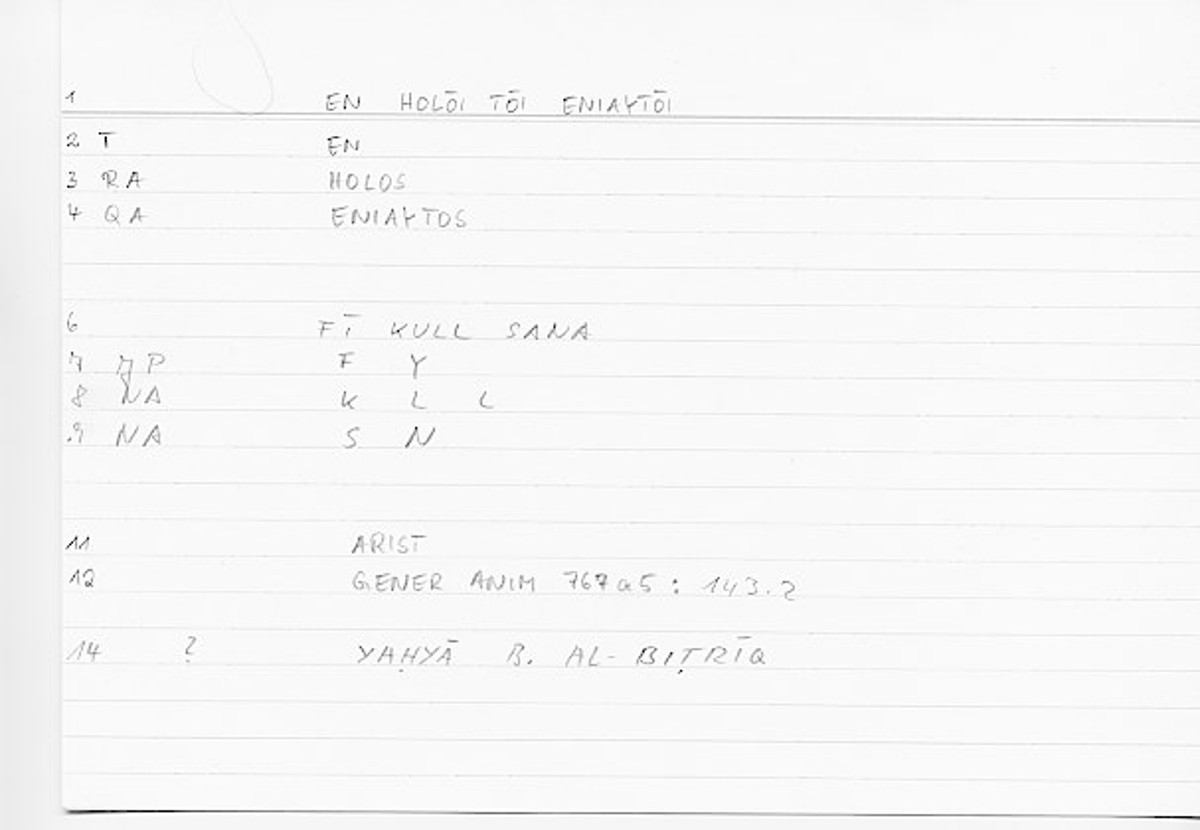 1 EN HOLŌI TŌI ENIAYTŌI
2 T EN
3 RA HOLOS
4 QA ENIAYTOS
6 FĪ KULL SANA
7 7P F Y
8 NA K L L
9 NA S N
11 ARIST
12 GENER ANIM 767a5 : 143.2
14 ? YAḤYĀ B. AL-BIṬRĪQ